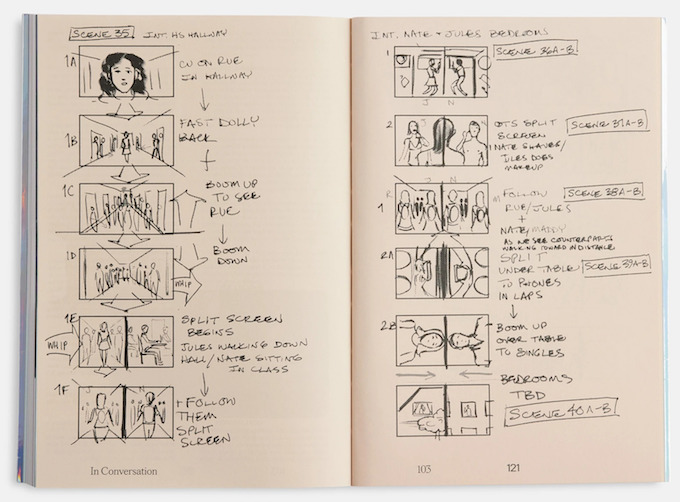 SCENE 35 INT. HS HALLWAY
1A
CU ON RUE
IN HALLWAY
1B
FAST DOLLY
BACK
1C
BOOM UP
TO SEE
RUE
1D
BOOM
DOWN
WHIP
1E
WHIP
SPLIT SCREEN
BEGINS
JULES WALKING DOWN
HALL/NATE SITTING
IN CLASS
1F
J N
+ FOLLOW
THEM
SPLIT
SCREEN
In Conversation
INT. NATE + JULES BEDROOMS
1
SCENE 36A-B
J N
2
J N
OTS SPLIT
SCREEN
NATE SHAVES/
JULES DOES
MAKEUP
SCENE 37A-B
R J N M
1
FOLLOW
RUE/JULES
+
NATE/MADDY
AS WE SEE COUNTERPARTS
WALKING TOWARD IN DISTANCE
SCENE 38A-B
2A
SPLIT
UNDER TABLE
TO PHONES
IN LAPS
SCENE 39A-B
2B
BOOM UP
OVER TABLE
TO SINGLES
BEDROOMS
TBD
SCENE 40A-B
103
121